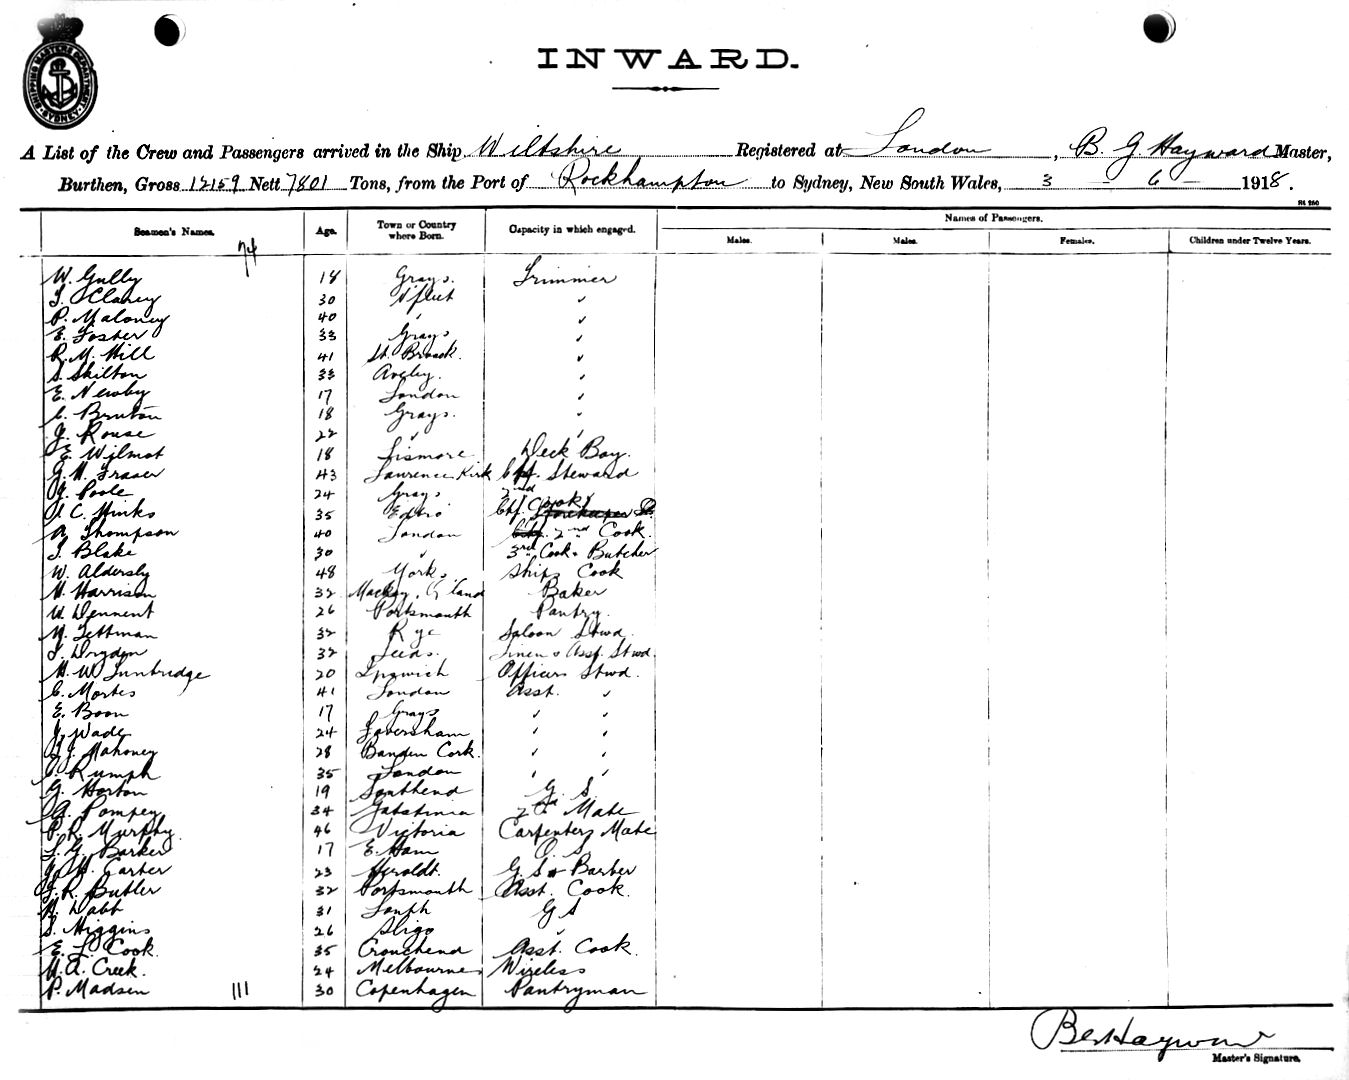 SHIPPING MASTERS DEPARTMENT SYDNEY
INWARD.
A List of the Crew and Passengers arrived in the Ship Wiltshire Registered at London, B. G. Hayward Master,
Burthen, Gross 12159 Nett 7801 Tons, from the Port of Rockhampton to Sydney, New South Wales, 3 - 6 - 1918.
Seamen's Names. Age. Town or Country where Born. Capacity in which engaged. Names of Passengers.
Males. Males. Females. Children under Twelve Years.
74
W. Gully 18 Grays. Trimmer
T. Clancy 30 N'fleet "
P. Maloney 40 " "
E. Foster 33 Grays "
R. M. Hill 41 "
S. Skilton 33 Aveley. "
E. Newby 17 London "
C. Bruton 18 Grays. "
J. Rouse 22 " "
E. Wilmot 18 Lismore Deck Boy.
G. H. Fraser 43 Laurence Kirk Chf. Steward
G. Poole 24 Grays 2nd "
C. Hinks 35 Chf. Cook
A. Thompson 40 London 2nd Cook.
T. Blake 30 " 3rd Cook & Butcher
W. Aldersby 48 York. Ships Cook
H. Harrison 32 Mackay, Q'land Baker
W. Dennent 26 Portsmouth Pantry.
H. Tettman 32 Rye Saloon Stwd.
T. Dryden 32 Leeds. Linen & Asst. Stwd.
H. W. Tunbridge 20 Ipswich Officers Stwd.
C. Mortes 41 London Asst. "
E. Boon 17 Grays " "
J. Wade 24 Faversham " "
J. Mahoney 28 Banden Cork. " "
C. Rumph 35 London " "
G. Horton 19 Southend G. S.
A. Pompey 34 Mate
P. R. Murphy. 46 Victoria Carpenters Mate
L. G. Barker 17 E. Ham O. S.
J. H. Carter 23 G. S. & Barber
J. R. Butler 32 Portsmouth Asst. Cook.
31 G S
S. Higgins 26 Sligo "
E. L. Cook. 35 Crouchend Asst. Cook.
H. A. Creek. 24 Melbourne Wireless
P. Madsen 111 30 Copenhagen Pantryman
Master's Signature.